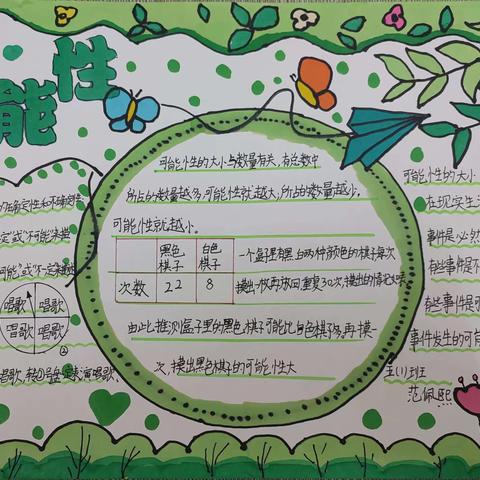 能性
可能性的大小与数量有关,在总数中
所占的数量越多,可能性就越大;所占的数量越小,
可能性就越小。
黑色棋子 白色棋子
次数 22 8
一个盒里有黑白两种颜色的棋子每次
摸出一枚再放回重复30次,摸出的情况如表
由此推测,盒子里的黑色棋子可能比白色棋子多,再摸一
次,摸出黑色棋子的可能性大
定"或"不可能"来描
可能"或"不一定"来描
唱歌 唱歌
唱歌 唱歌
②
唱歌,转
表演唱歌。
可能性的大小
在现实生活
事件是必然
有些事件是不
有些事件是可
事件发生的可能
班
范佩熙